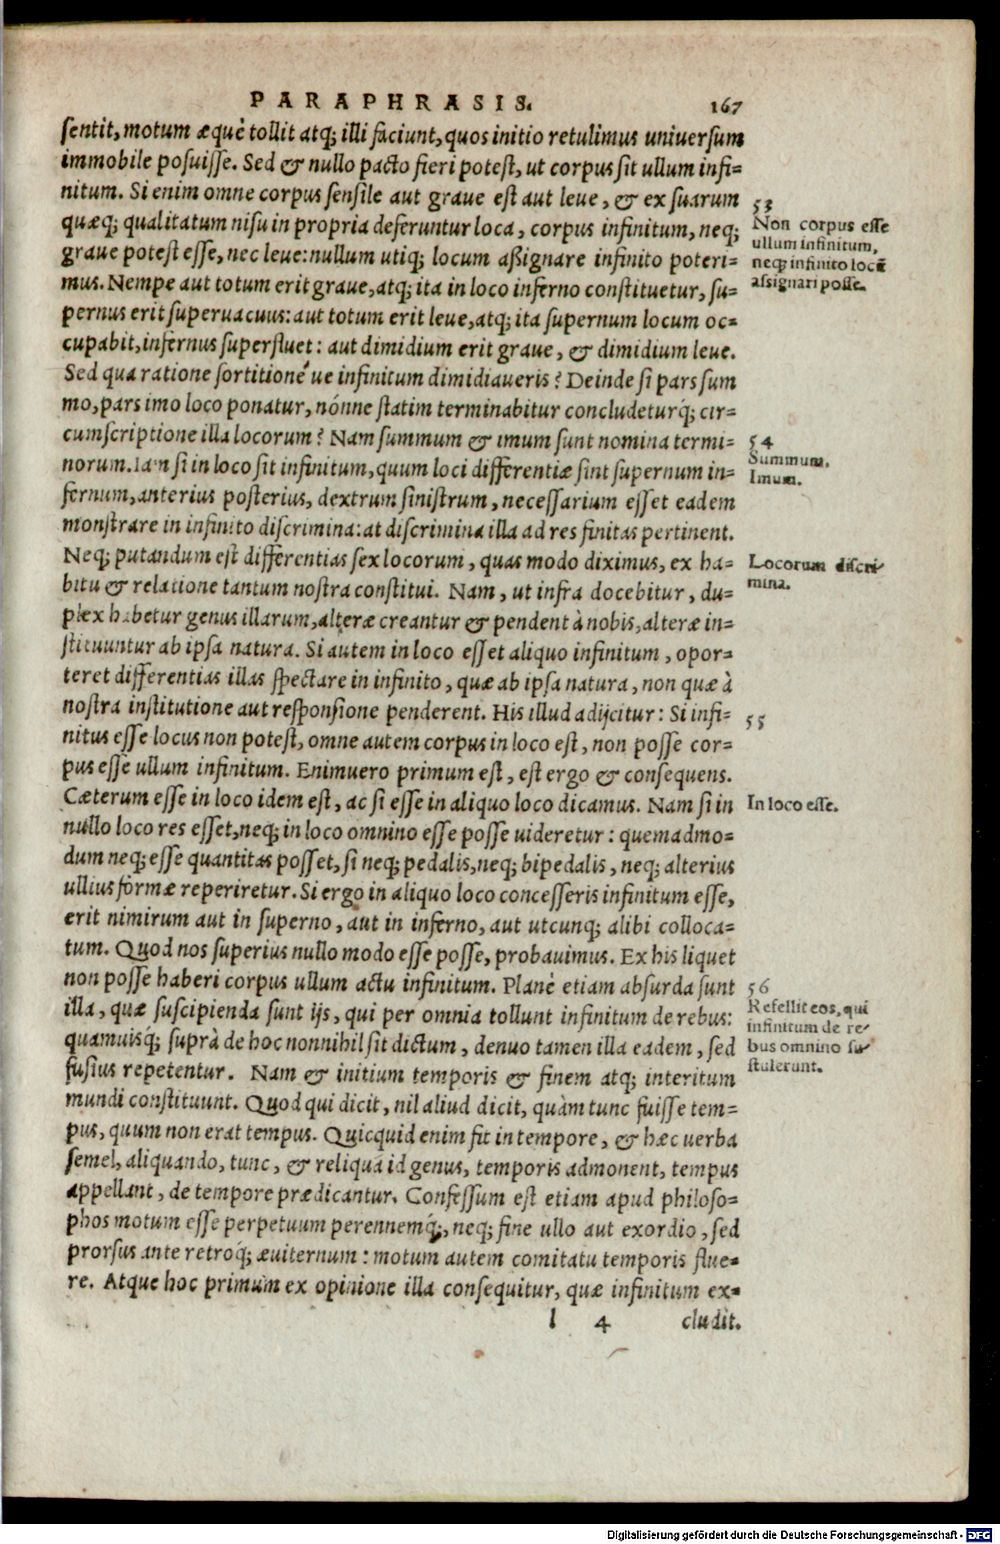 PARAPHRASIS. 167
sentit, motum æquè tollit atq; illi faciunt, quos initio retulimus universum
immobile posuisse. Sed & nullo pacto fieri potest, ut corpus sit ullum infi=
nitum. Si enim omne corpus sensile aut graue est aut leue, & ex suarum
quæq; qualitatum nisu in propria deferuntur loca, corpus infinitum, neq;
graue potest esse, nec leue: nullum utiq; locum aßignare infinito poteri=
mus. Nempe aut totum erit graue, atq; ita in loco inferno constituetur, su=
pernus erit superuacuus: aut totum erit leue, atq; ita supernum locum oc=
cupabit, infernus superfluet: aut dimidium erit graue, & dimidium leue.
Sed qua ratione sortitione´ue infinitum dimidiaueris? Deinde si pars sum
mo, pars imo loco ponatur, nónne statim terminabitur concludeturq́; cir=
cumscriptione illa locorum? Nam summum & imum sunt nomina termi=
norum. Iam si in loco sit infinitum, quum loci differentiæ sint supernum in=
fernum, anterius posterius, dextrum sinistrum, necessarium esset eadem
monstrare in infinito discrimina: at discrimina illa ad res finitas pertinent.
Neq; putandum est differentias sex locorum, quas modo diximus, ex ha=
bitu & relatione tantum nostra constitui. Nam, ut infra docebitur, du=
plex habetur genus illarum, alteræ creantur & pendent à nobis, alteræ in=
stituuntur ab ipsa natura. Si autem in loco esset aliquo infinitum, opor=
teret differentias illas spectare in infinito, quæ ab ipsa natura, non quæ à
nostra institutione aut responsione penderent. His illud adijcitur: Si infi=
nitus esse locus non potest, omne autem corpus in loco est, non posse cor=
pus esse ullum infinitum. Enimuero primum est, est ergo & consequens.
Cæterum esse in loco idem est, ac si esse in aliquo loco dicamus. Nam si in
nullo loco res esset, neq; in loco omnino esse posse uideretur: quemadmo=
dum neq; esse quantitas posset, si neq; pedalis, neq; bipedalis, neq; alterius
ullius formæ reperiretur. Si ergo in aliquo loco concesseris infinitum esse,
erit nimirum aut in superno, aut in inferno, aut utcunq; alibi colloca=
tum. Quod nos superius nullo modo esse posse, probauimus. Ex his liquet
non posse haberi corpus ullum actu infinitum. Planè etiam absurda sunt
illa, quæ suscipienda sunt ijs, qui per omnia tollunt infinitum de rebus:
quamuisq́; suprà de hoc nonnihil sit dictum, denuo tamen illa eadem, sed
fusius repetentur. Nam & initium temporis & finem atq; interitum
mundi constituunt. Quod qui dicit, nil aliud dicit, quàm tunc fuisse tem=
pus, quum non erat tempus. Quicquid enim fit in tempore, & hæc uerba
semel, aliquando, tunc, & reliqua id genus, temporis admonent, tempus
appellant, de tempore prædicantur. Confessum est etiam apud philoso=
phos motum esse perpetuum perennemq́;, neq; fine ullo aut exordio, sed
prorsus ante retroq́; æuiternum: motum autem comitatu temporis flue=
re. Atque hoc primum ex opinione illa consequitur, quæ infinitum ex=
l 4 cludit.
53
Non corpus esse
ullum infinitum,
neq; infinito locū
assignari posse.
54
Summum.
Imum.
Locorum discri
mina.
55
In loco esse.
56
Refellit eos, qui
infinitum de re
bus omnino su
stulerunt.
Digitalisierung gefördert durch die Deutsche Forschungsgemeinschaft - DFG